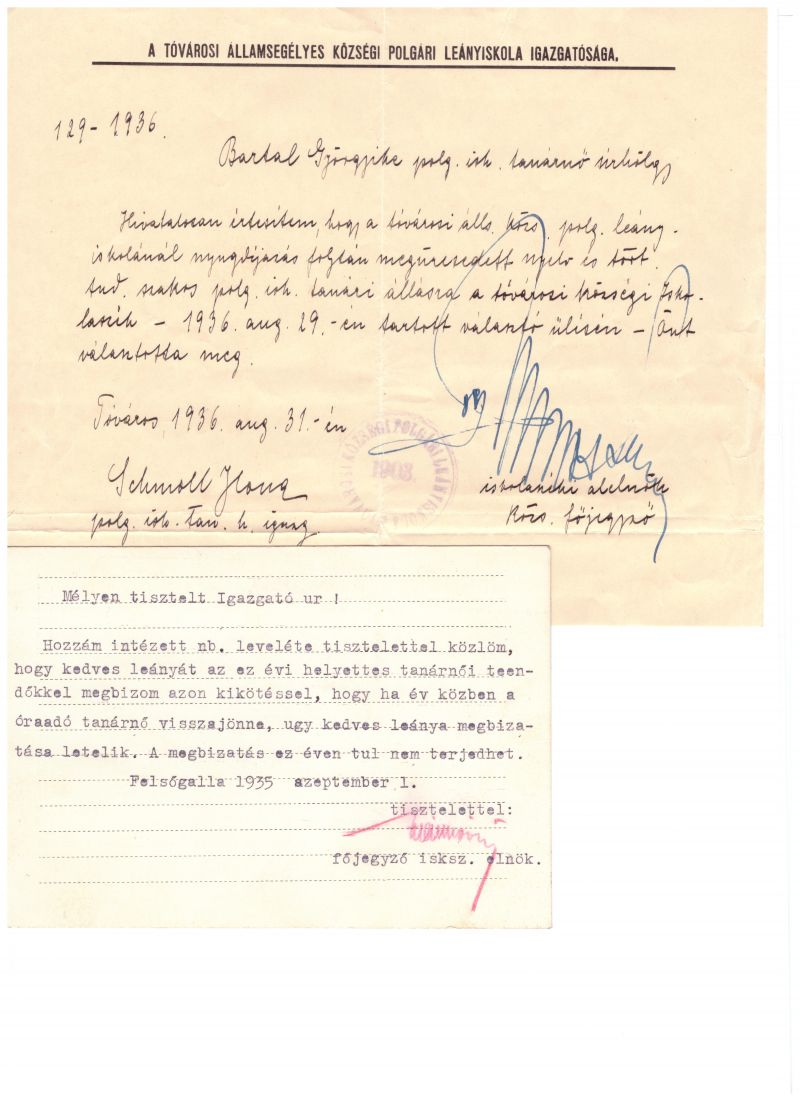 A TÓVÁROSI ÁLLAMSEGÉLYES KÖZSÉGI POLGÁRI LEÁNYISKOLA IGAZGATÓSÁGA.
129-1936.
Bartal Györgyike polg. isk. tanárnő úrhölgy
Hivatalosan értesítem, hogy a tóvárosi álls. közs. polg. leány-
iskolánál nyugdíjazás folytán megüresedett nyelv és tört.
tud. szakos polg. isk. tanári állásra a tóvárosi községi Isko-
laszék - 1936. aug. 29.-én tartott választó ülésén - Önt
választotta meg.
Tóváros, 1936. aug. 31.-én
KÖZSÉGI POLGÁRI LEÁNYISKOLA
1903.
Schmoll Ilona
polg. isk. tan. h. igazg.
iskolaszéki alelnök
közs. főjegyző
Mélyen tisztelt Igazgató ur !
Hozzám intézett nb. leveléte tisztelettel közlöm,
hogy kedves leányát az ez évi helyettes tanárnői teen-
dőkkel megbizom azon kikötéssel, hogy ha év közben a
óraadó tanárnő visszajönne, ugy kedves leánya megbiza-
tása letelik. A megbizatás ez éven tul nem terjedhet.
Felsőgalla 1935 azeptember 1.
tisztelettel:
főjegyző isksz. elnök.